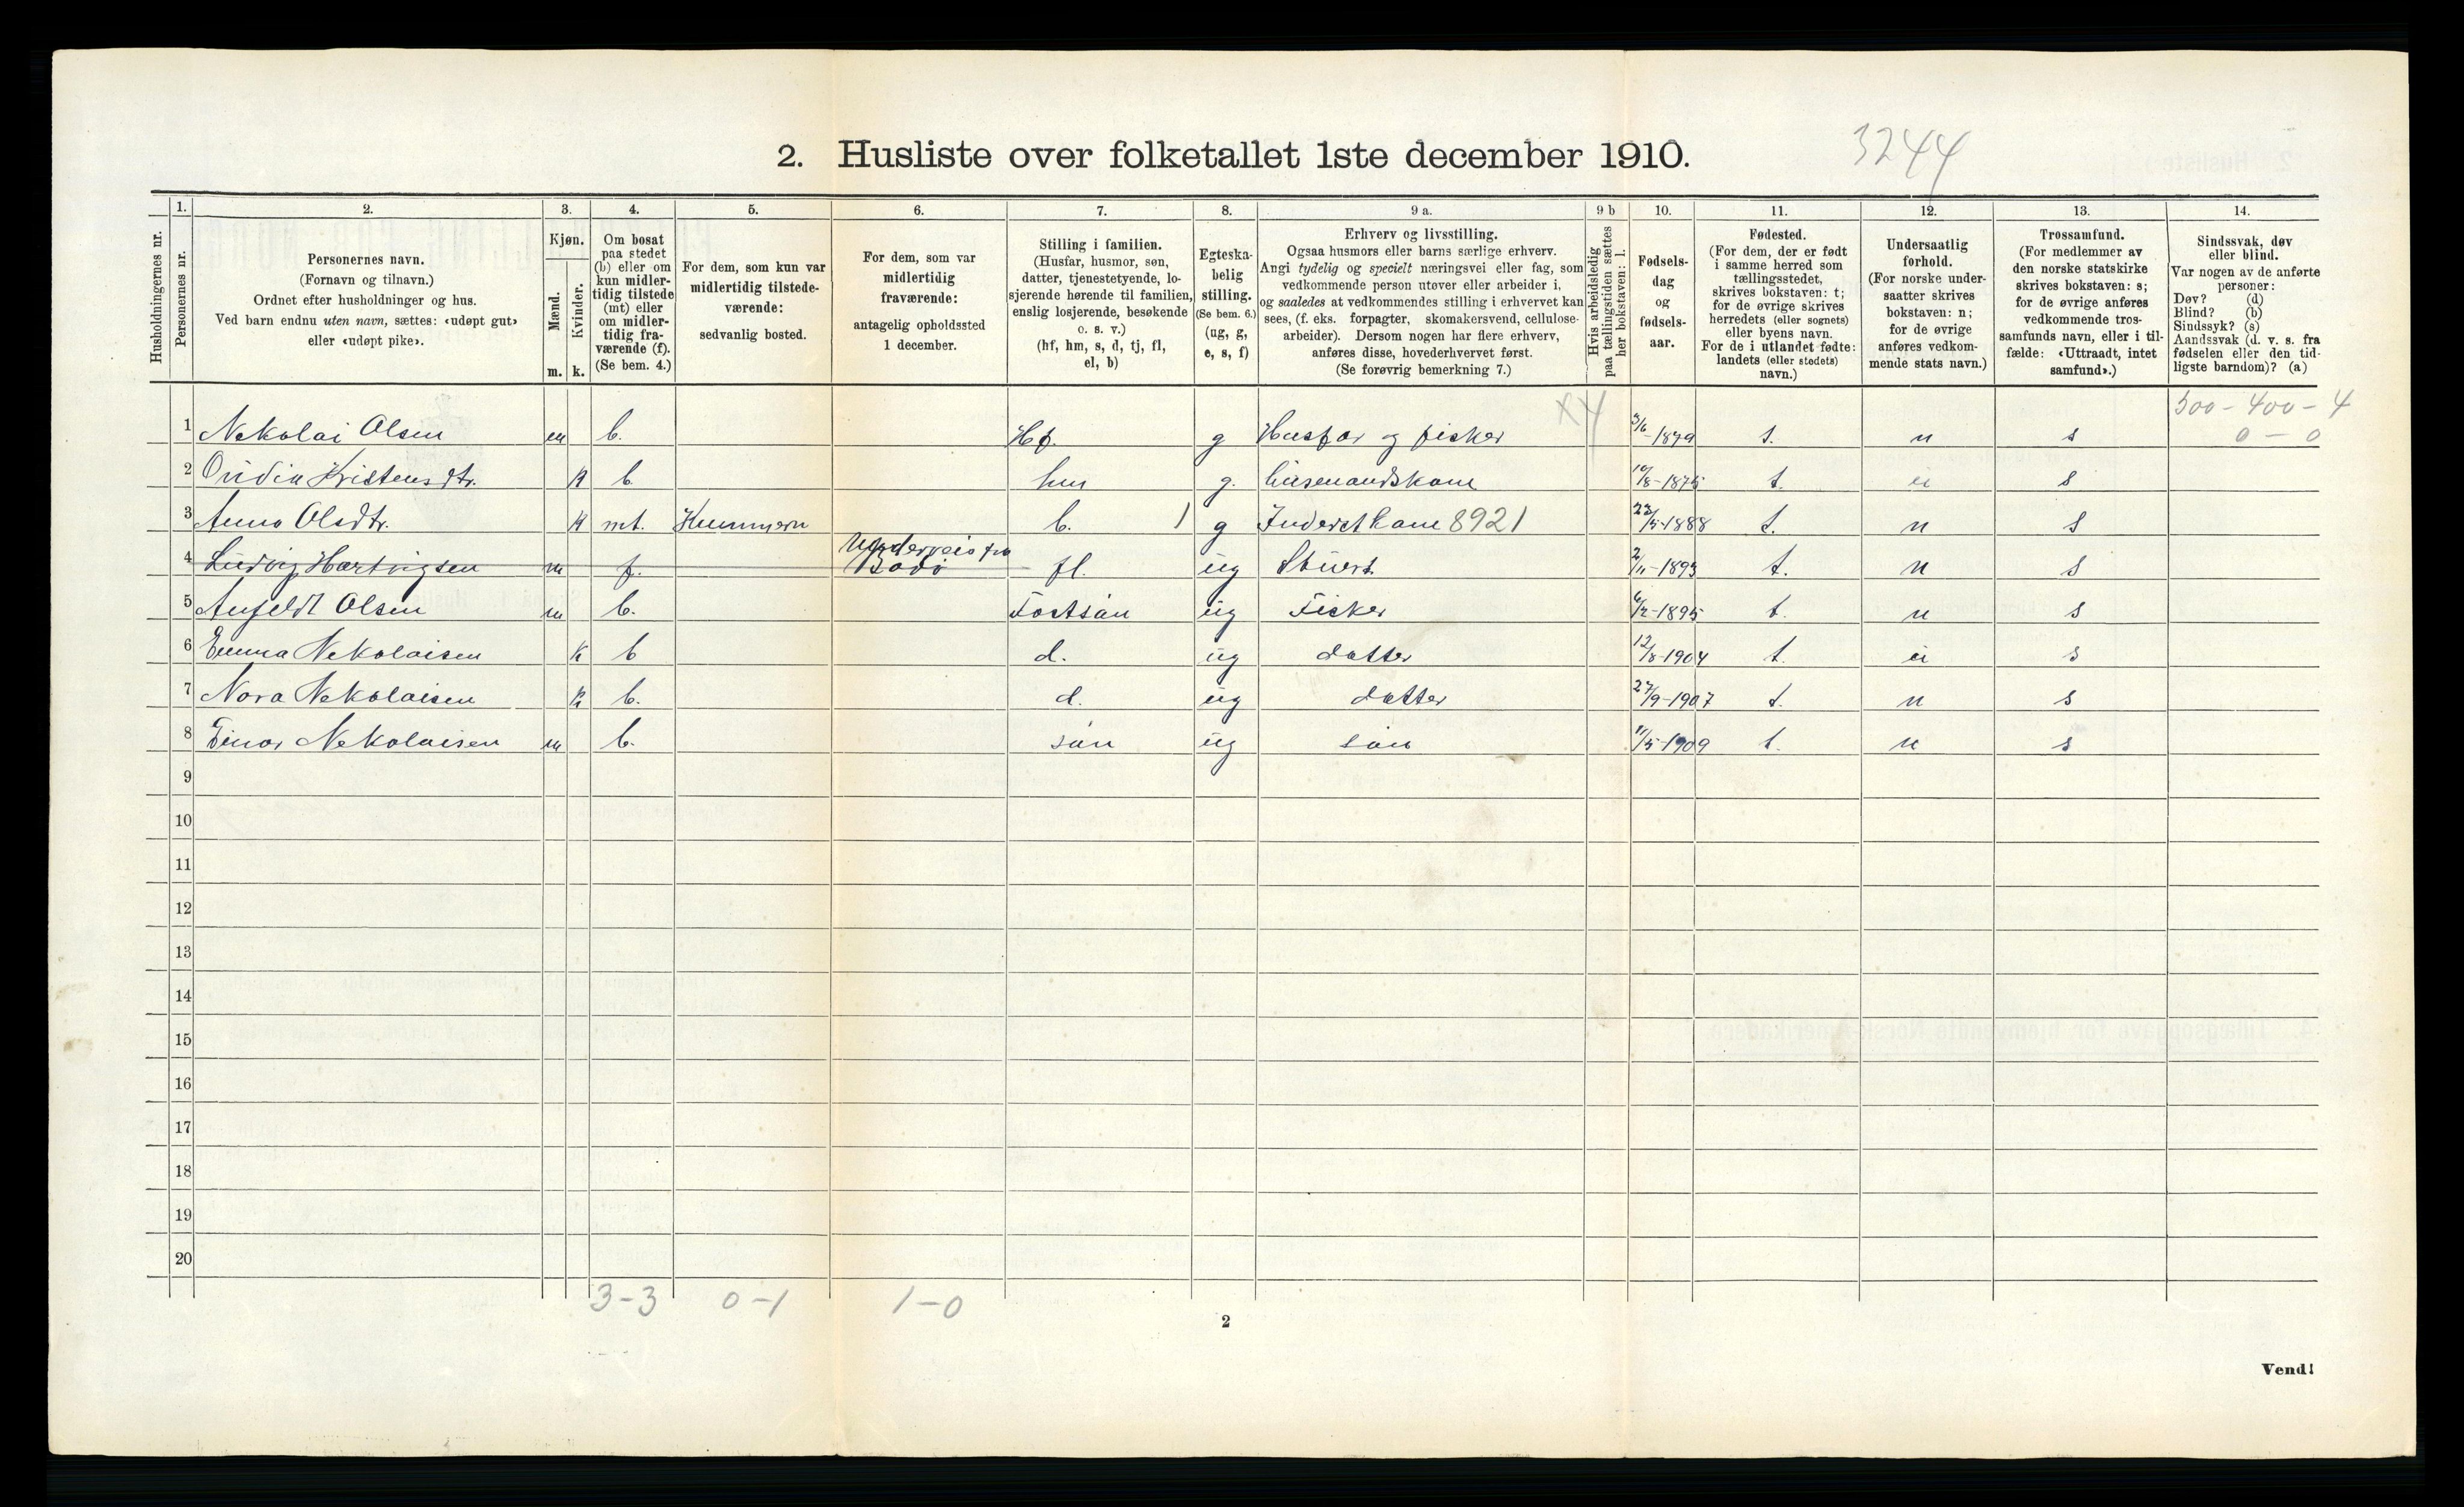 2. Husliste over folketallet 1ste december 1910.
3244
1. 2. 3. 4. 5. 6. 7. 8. 9 a. 9 b 10. 11. 12. 13. 14.
Husholdningernes nr.
Personernes nr.
Personernes navn.
(Fornavn og tilnavn.)
Ordnet efter husholdninger og hus.
Ved barn endnu uten navn, sættes: «udøpt gut»
eller «udøpt pike».
Kjøn.
Mænd.
Kvinder.
m. k.
Om bosat
paa stedet
(b) eller om
kun midler-
tidig tilstede
(mt) eller
om midler-
tidig fra-
værende (f).
(Se bem. 4.)
For dem, som kun var
midlertidig tilstede-
værende:
sedvanlig bosted.
For dem, som var
midlertidig
fraværende:
antagelig opholdssted
1 december.
Stilling i familien.
(Husfar, husmor, søn,
datter, tjenestetyende, lo-
sjerende hørende til familien,
enslig losjerende, besøkende
o. s. v.)
(hf, hm, s, d, tj, fl,
el, b)
Egteska-
belig
stilling.
(Se bem. 6.)
(ug, g,
e, s, f)
Erhverv og livsstilling.
Ogsaa husmors eller barns særlige erhverv.
Angi tydelig og specielt næringsvei eller fag, som
vedkommende person utøver eller arbeider i,
og saaledes at vedkommendes stilling i erhvervet kan
sees, (f. eks. forpagter, skomakersvend, cellulose-
arbeider). Dersom nogen har flere erhverv,
anføres disse, hovederhvervet først.
(Se forøvrig bemerkning 7.)
Hvis arbeidsledig
paa tællingstiden sættes
her bokstaven: l.
Fødsels-
dag
og
fødsels-
aar.
Fødested.
(For dem, der er født
i samme herred som
tællingsstedet,
skrives bokstaven: t;
for de øvrige skrives
herredets (eller sognets)
eller byens navn.
For de i utlandet fødte:
landets (eller stedets)
navn.)
Undersaatlig
forhold.
(For norske under-
saatter skrives
bokstaven: n;
for de øvrige
anføres vedkom-
mende stats navn.)
Trossamfund.
(For medlemmer av
den norske statskirke
skrives bokstaven: s;
for de øvrige anføres
vedkommende tros-
samfunds navn, eller i til-
fælde: «Uttraadt, intet
samfund».)
Sindssvak, døv
eller blind.
Var nogen av de anførte
personer:
Døv? (d)
Blind? (b)
Sindssyk? (s)
Aandssvak (d. v. s. fra
fødselen eller den tid-
ligste barndom)? (a)
X4 300 - 400 - 4
1 Nekolai Olsen m b. Hf. g Husfar og fisker 3/6-1879 t. n s 0 - 0
2 Ovidia Kristensdtr. k b. hm g. Husmandskone 10/8-1875 t. n s
3 Anna Olsdtr. k mt. b. 1 g 8921 23/5-1888 t. n s
Underveis fra
4 Ludvig Hartvigsen m f. Bodø fl. ug 2/11-1893 t. n s
5 Anfeldt Olsen m b. Fostsøn ug Fisker 6/2-1895 t. n s
6 Emma Nekolaisen k b d. ug datter 12/8-1904 t. n s
7 Nora Nekolaisen k b. d. ug datter 27/9-1907 t. n s
8 Einar Nekolaisen m b. søn ug søn 11/5-1909 t. n s
9
10
11
12
13
14
15
16
17
18
19
20
3-3 0-1 1-0
2
Vend!